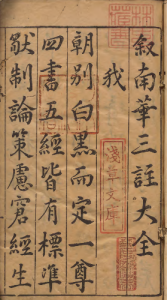 叙南華三註大全
我
朝別白黑而定一尊
四書五經皆有標準
猷制論策慮窘經生
淺草文庫